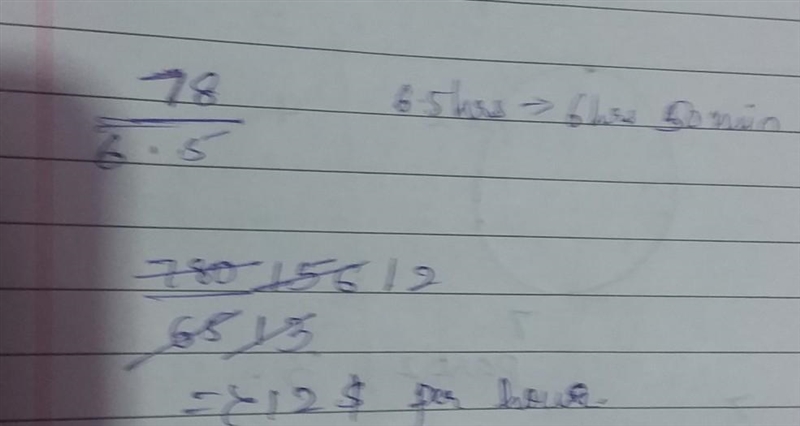 78
6.5
6.5 hrs → 6 hrs 50 min
780 156 12
65 13
=> 12 $ per hour.